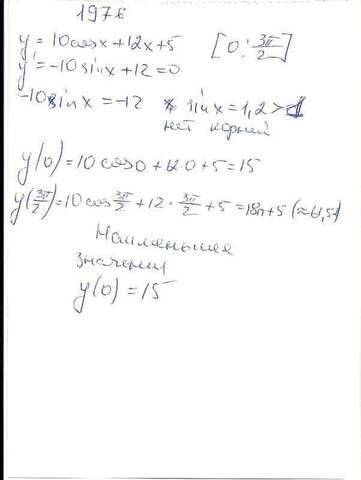 1976
y = 10cosx + 12x + 5 [0; 3π/2]
y' = -10sinx + 12 = 0
-10sinx = -12 sinx = 1,2 > 1
нет корней
y(0) = 10cos0 + 12·0 + 5 = 15
y(3π/2) = 10cos 3π/2 + 12 · 3π/2 + 5 = 18π + 5 (≈61,5)
Наименьшее
значение
y(0) = 15